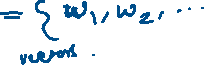 = { w₁, w₂, ...
vectors.